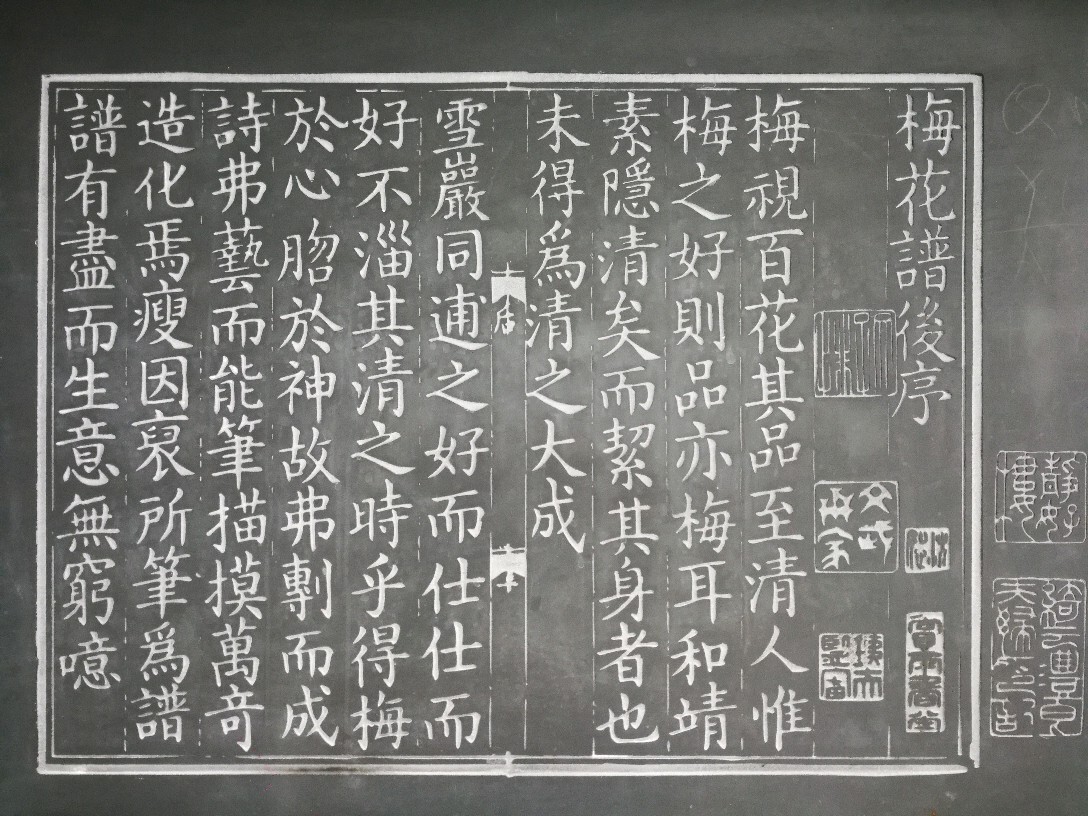 梅花譜後序
梅視百花其品至清人惟
梅之好則品亦梅耳和靖
素隱清矣而挈其身者也
未得爲清之大成
雪巖同逋之好而仕仕而
好不淄其清之時乎得梅
於心㫚於神故弗剸而成
詩弗藝而能筆描摸萬竒
造化焉瘦因裒所筆爲譜
譜有盡而生意無窮噫